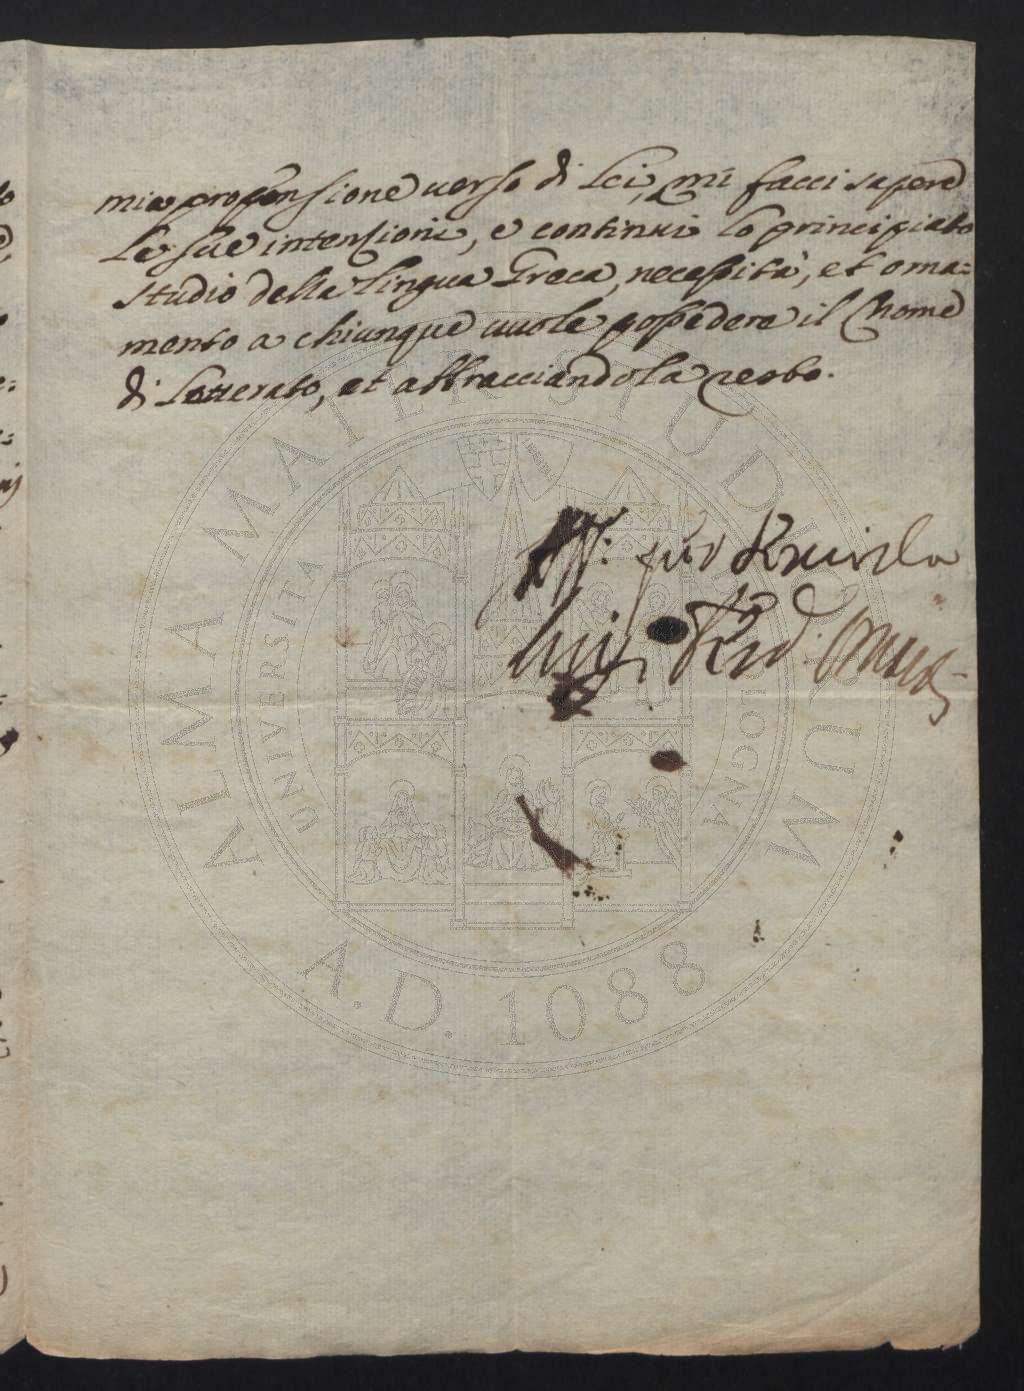 mia propensione verso di Lei, mi facci sapere
le sue intensioni, e continui lo principiato
studio della lingua Greca, necessità, et orna=
mento a chiunque vuole possedere il Nome
di Letterato, et abbracciandola resto.
Aff: per
Luigi
ALMA MATER STUDIORUM
UNIVERSITÀ DI BOLOGNA
A.D. 1088